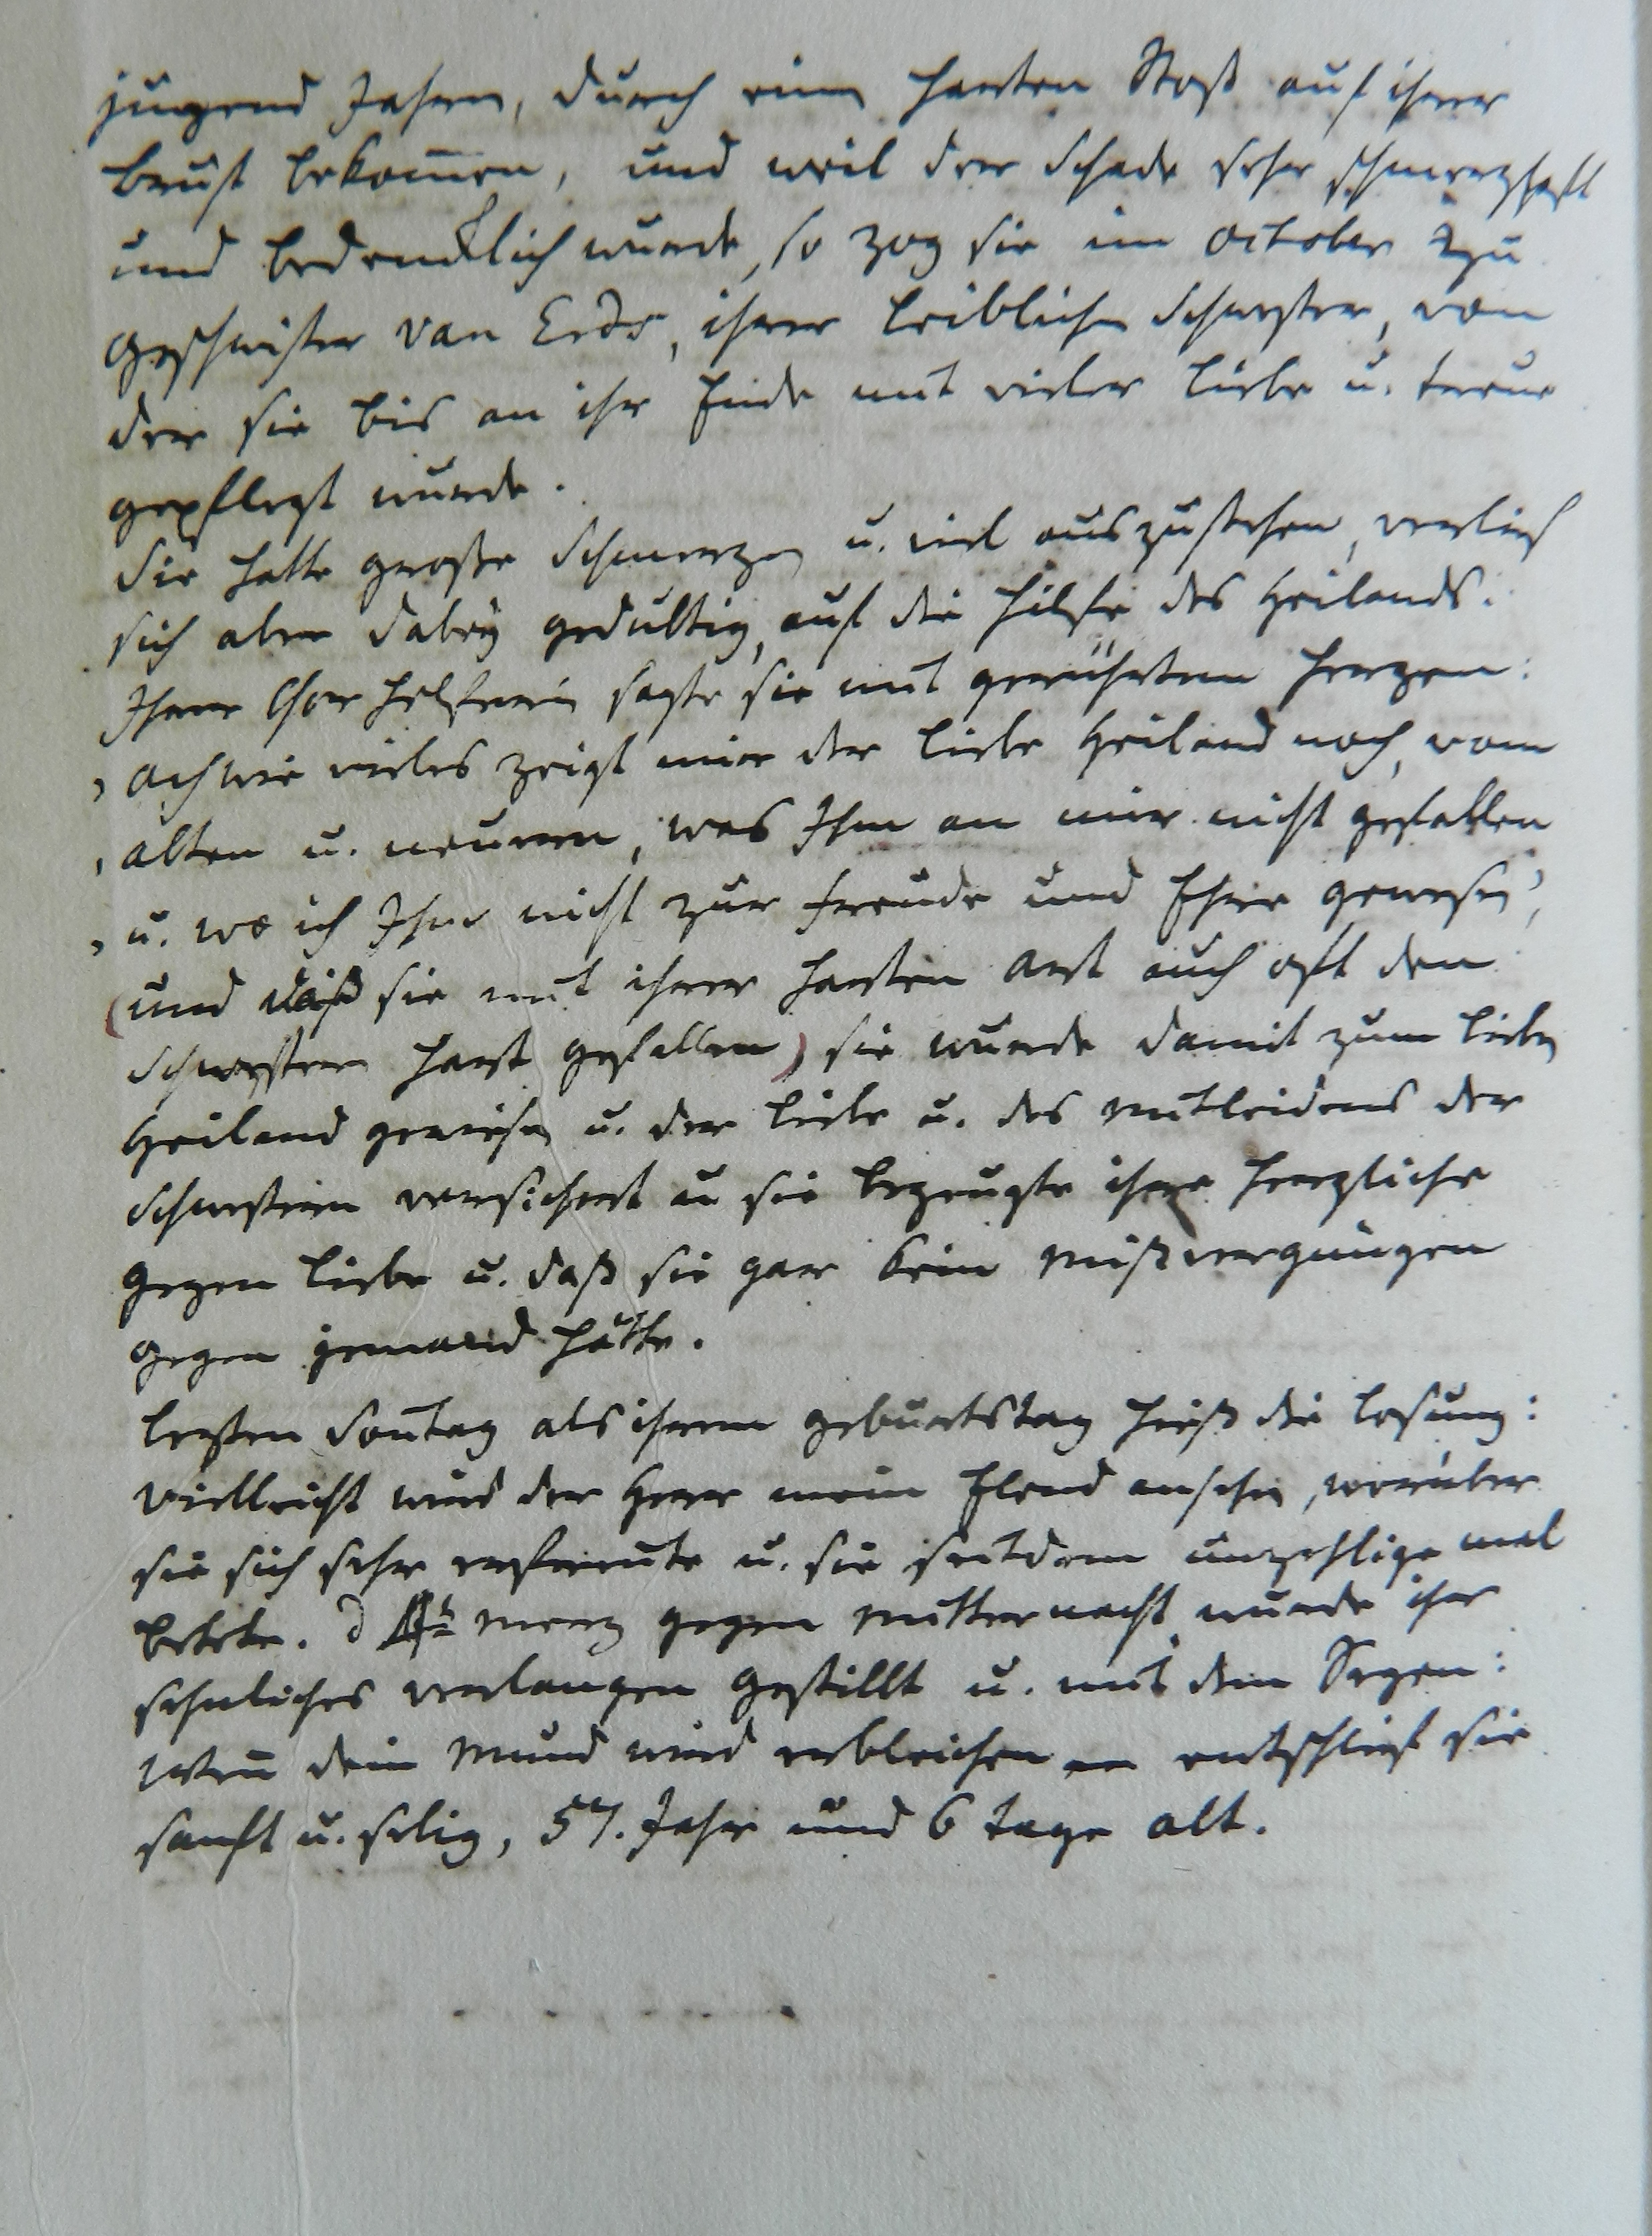 jugend Jahren, durch einen harten Stoß auf ihrer
Brust bekom̄en, und weil der Schade sehr schmerzhaft
und bedencklich wurde, so zog sie im October zu
Geschwister van Erds, ihrer leiblichen Schwester, von
der sie bis an ihr Ende mit vieler Liebe u. treue
gepflegt wurde.
Sie hatte große Schmerzen u. viel auszustehen, verließ
sich aber dabey gedultig, auf die Hilfe des Heilands.
Ihrer Chor Helferin sagte sie mit gerührtem Herzen:
„ ach wie vieles zeigt mir der liebe Heiland noch, vom
„ alten u. neuern, was Ihm an mir nicht gefallen
„ u. wo ich Ihm nicht zur Freude und Ehre gewesen“,
(und daß sie mit ihrer harten Art auch oft den
Schwestern hart gefallen) sie wurde damit zum lieben
Heiland gewiesen u. der Liebe u. des Mitleidens der
Schwestern versichert u sie bezeugte ihre herzliche
Gegen Liebe u. daß sie gar kein Mißvergnügen
gegen jemand hätte.
Lezten Son̄tag als ihrem Geburtstag hieß die Losung:
Vielleicht wird der Herr mein Elend ansehen, worüber
sie sich sehr erfreute u. sie seitdem unzehlige mal
betete. d Merz gegen Mitternacht wurde ihr
sehnliches verlangen gestillt u. mit dem Segen:
Wen̄ dein Mund wird erbleichen entschlief sie
sanft u. selig, 57. Jahr und 6 Tage alt.